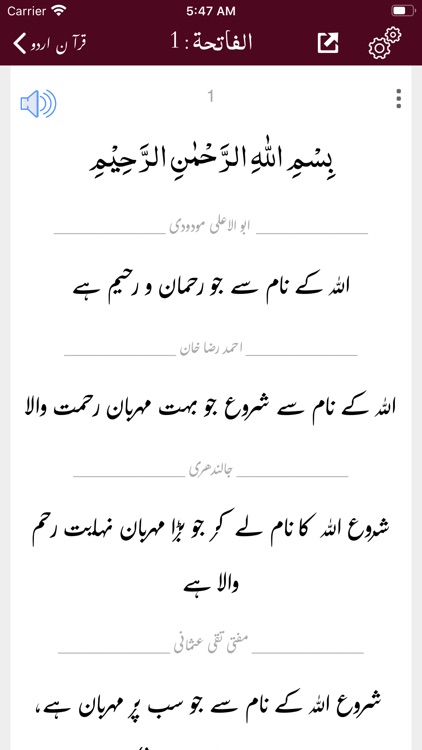 Carrier 5:47 AM
قرآن اردو الفاتحة : 1
1
بِسْمِ اللّٰهِ الرَّحْمٰنِ الرَّحِيْمِ
ابو الاعلی مودودی
اللہ کے نام سے جو رحمان و رحیم ہے
احمد رضا خان
اللہ کے نام سے شروع جو بہت مہربان رحمت والا
جالندھری
شروع اللہ کا نام لے کر جو بڑا مہربان نہایت رحم
والا ہے
مفتی تقی عثمانی
شروع اللہ کے نام سے جو سب پر مہربان ہے،